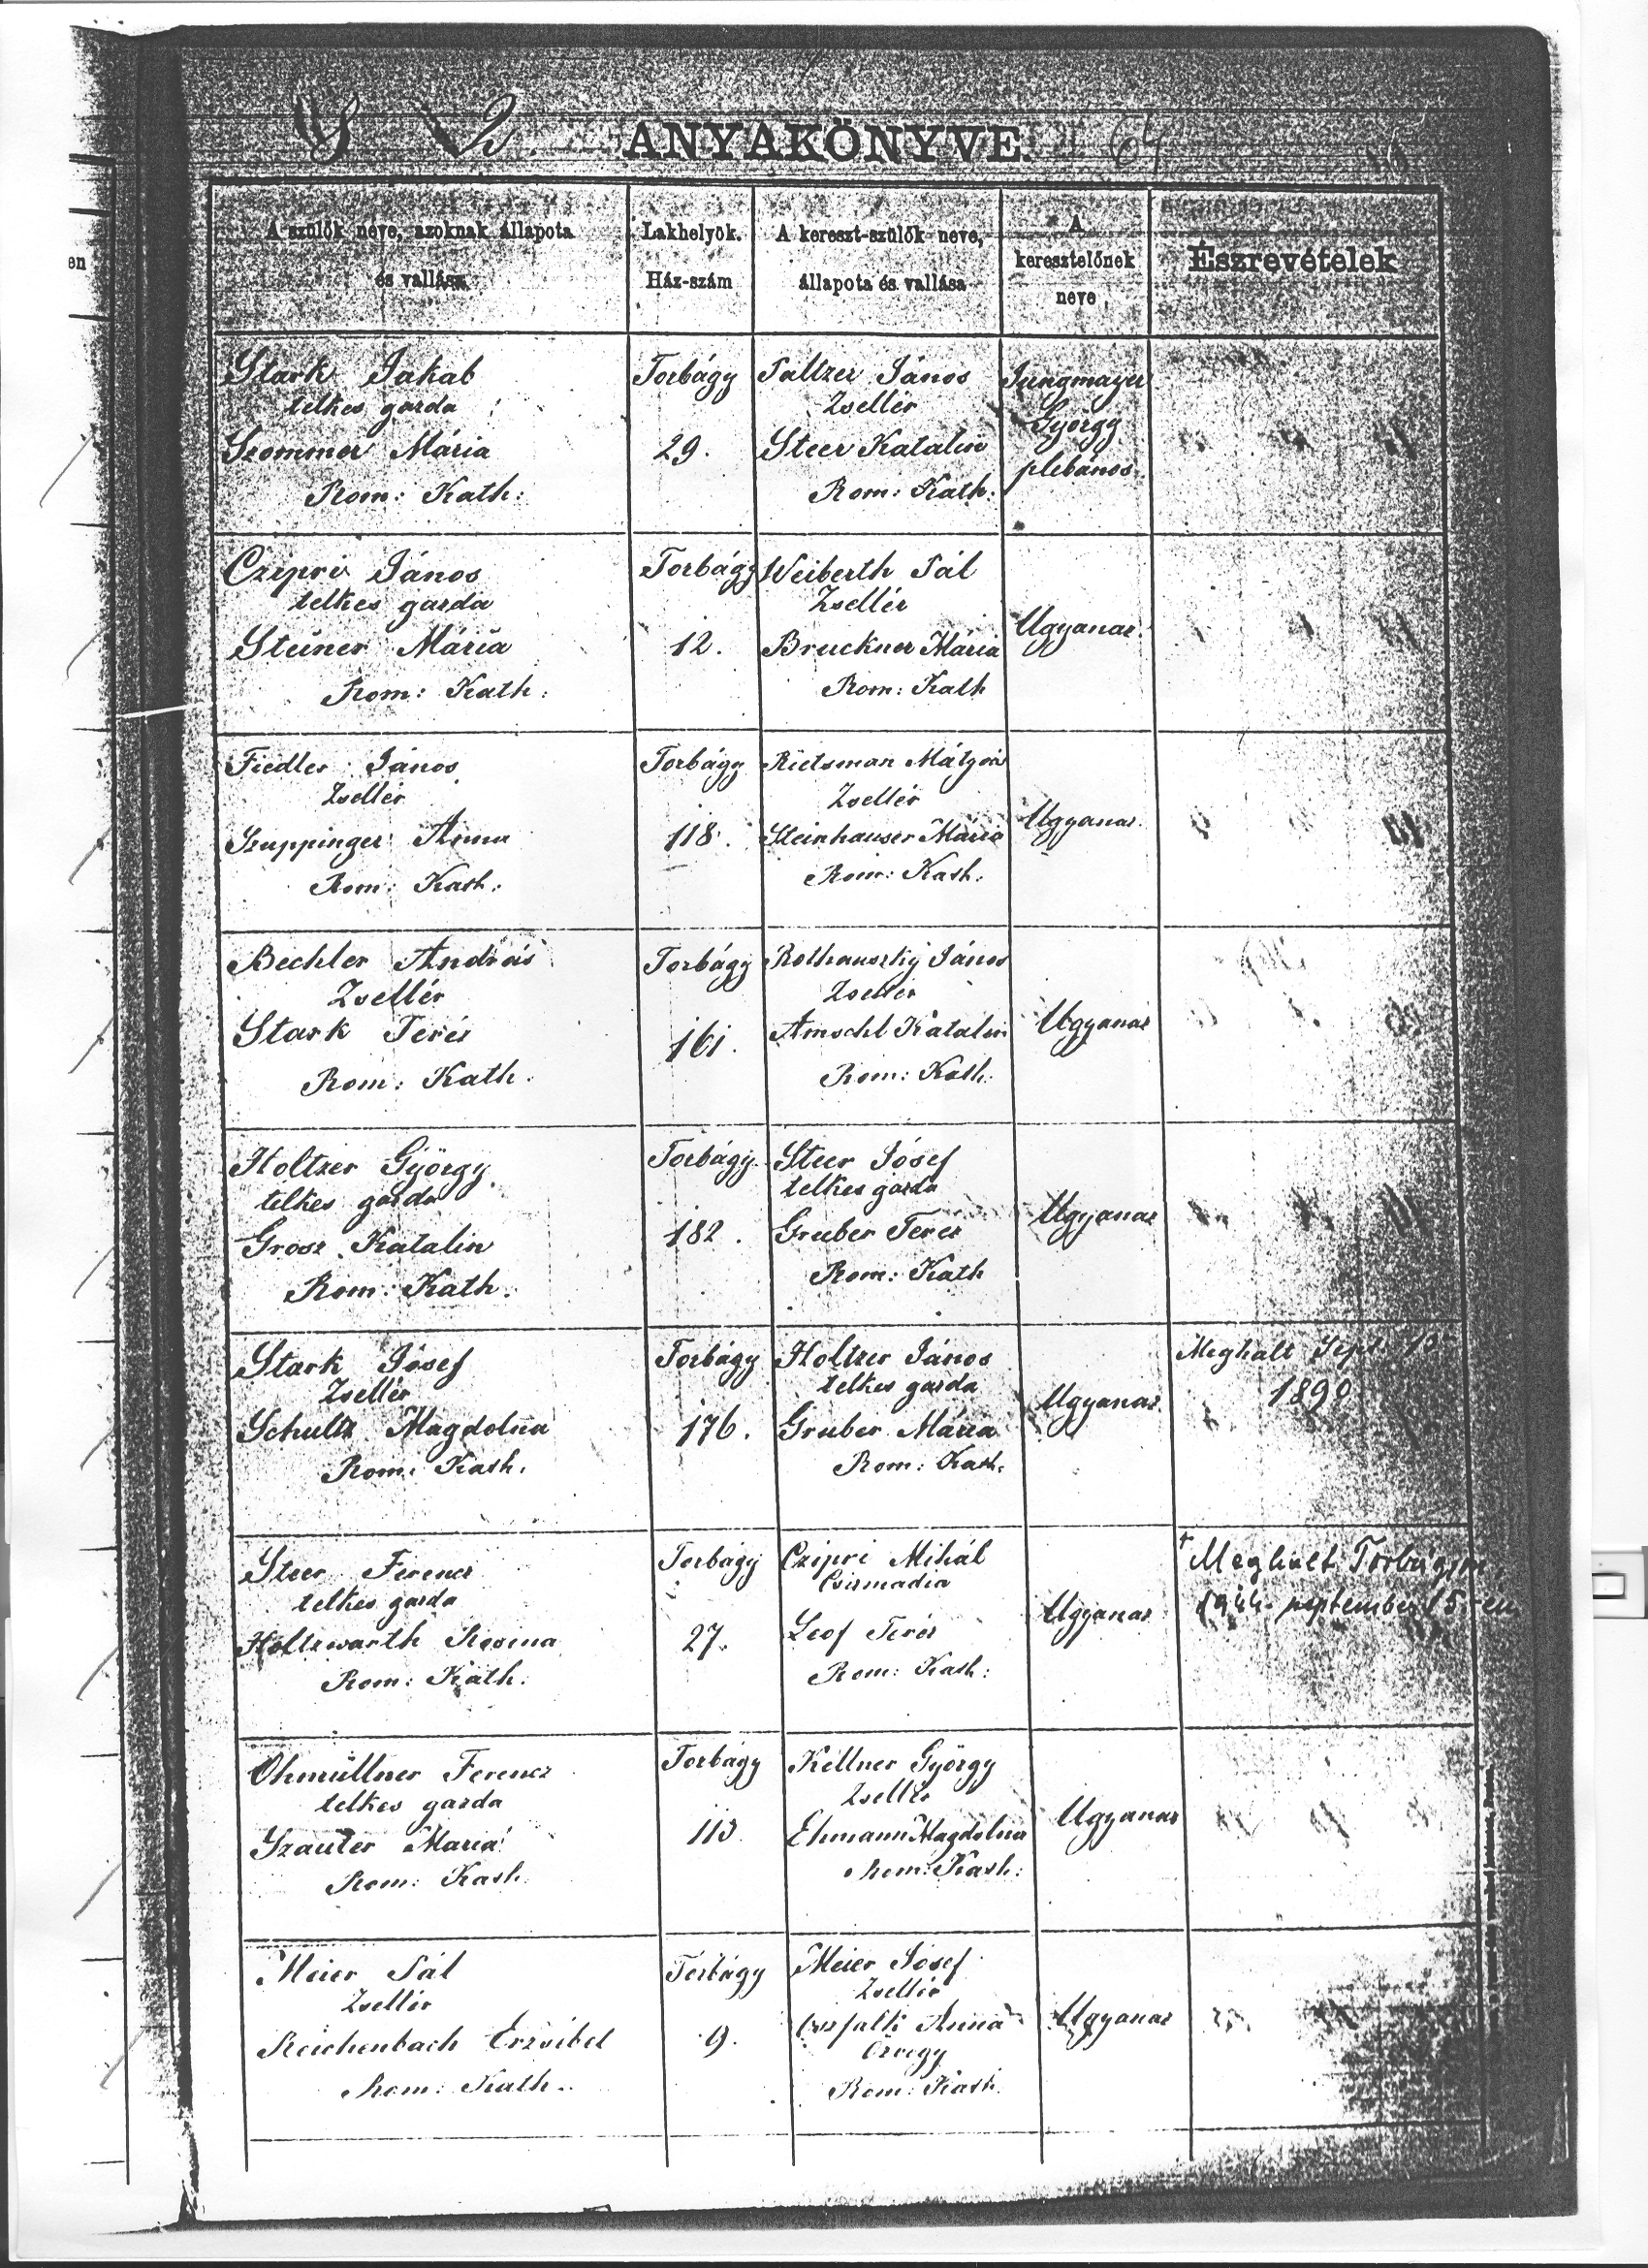 ANYAKÖNYVE. 64
en
A szülők neve, azoknak állapota
és vallása
Lakhelyök.
Ház-szám
A kereszt-szülők neve,
állapota és vallása
A
keresztelőnek
neve
Észrevételek
Stark Jakab
telkes gazda
Szommer Mária
Rom: Kath:
Torbágy
29.
Paltzer János
Zsellér
Steer Katalin
Rom: Kath:
Jungmayer
György
plébános
Czipri János
telkes gazda
Steiner Mária
Rom: Kath:
Torbágy
12.
Weiberth Pál
Zsellér
Bruckner Mária
Rom: Kath
Ugyanaz
Fiedler János
Zsellér
Szuppinger Anna
Rom: Kath:
Torbágy
118.
Rietsman Mátyás
Zsellér
Steinhauser Mária
Rom: Kath:
Ugyanaz
Bechler András
Zsellér
Stark Teréz
Rom: Kath.
Torbágy
161.
Zsellér
Amschl Katalin
Rom: Kath.
Ugyanaz
Holtzer György
telkes gazda
Grosz Katalin
Rom: Kath.
Torbágy
182.
Steer Jósef
telkes gazda
Gruber Teréz
Rom: Kath
Ugyanaz
Stark Jósef
Zsellér
Schultz Magdolna
Rom: Kath.
Torbágy
176.
Holtzer János
telkes gazda
Gruber Mária
Rom: Kath.
Ugyanaz
Meghalt Sept.
1890
Steer Ferencz
telkes gazda
Holtzwarth Rosina
Rom: Kath.
Torbágy
27.
Czipri Mihál
Csizmadia
Leof Teréz
Rom: Kath:
Ugyanaz
Meghalt Torbágyon
1944. september 15-én
Ohmüllner Ferencz
telkes gazda
Szauter Mária
Rom: Kath.
Torbágy
113
Kellner György
Zsellér
Ehmann Magdolna
Rom: Kath:
Ugyanaz
Meier Pál
Zsellér
Reichenbach Erzsébet
Rom: Kath.
Torbágy
9.
Meier Jósef
Zsellér
Anna
özvegy
Rom: Kath.
Ugyanaz